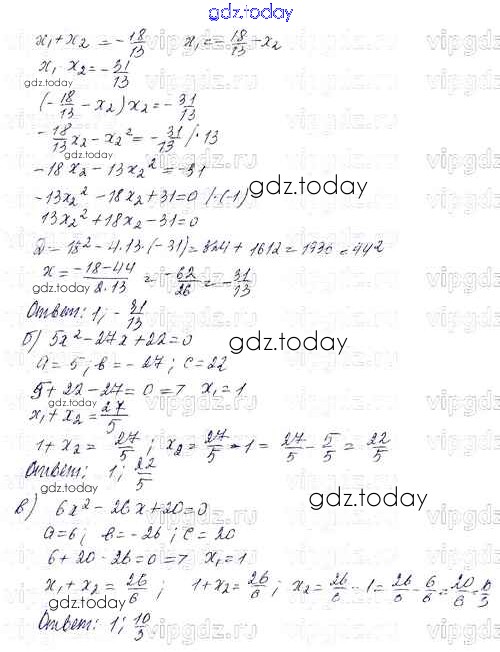 gdz.today
x₁+x₂ = -18/13   x₁ = -18/13 - x₂
x₁ x₂ = -31/13
(-18/13 - x₂) x₂ = -31/13
-18/13 x₂ - x₂² = -31/13 /·13
gdz.today
-18x₂ - 13x₂² = -31
-13x₂² - 18x₂ + 31 = 0 /·(-1)
gdz.today
13x₂² + 18x₂ - 31 = 0
D = 18² - 4·13·(-31) = 324 + 1612 = 1936 = 44²
x = (-18-44)/(2·13) = -62/26 = -31/13
gdz.today
Ответ: 1; -31/13
б) 5x² - 27x + 22 = 0
gdz.today
a = 5; b = -27; c = 22
5 + 22 - 27 = 0 => x₁ = 1
x₁ + x₂ = 27/5
gdz.today
1 + x₂ = 27/5; x₂ = 27/5 - 1 = 27/5 - 5/5 = 22/5
Ответ: 1; 22/5
в) 6x² - 26x + 20 = 0
gdz.today
a = 6; b = -26; c = 20
6 + 20 - 26 = 0 => x₁ = 1
x₁ + x₂ = 26/6; 1 + x₂ = 26/6; x₂ = 26/6 - 1 = 26/6 - 6/6 = 20/6 = 10/3
gdz.today
Ответ: 1; 10/3